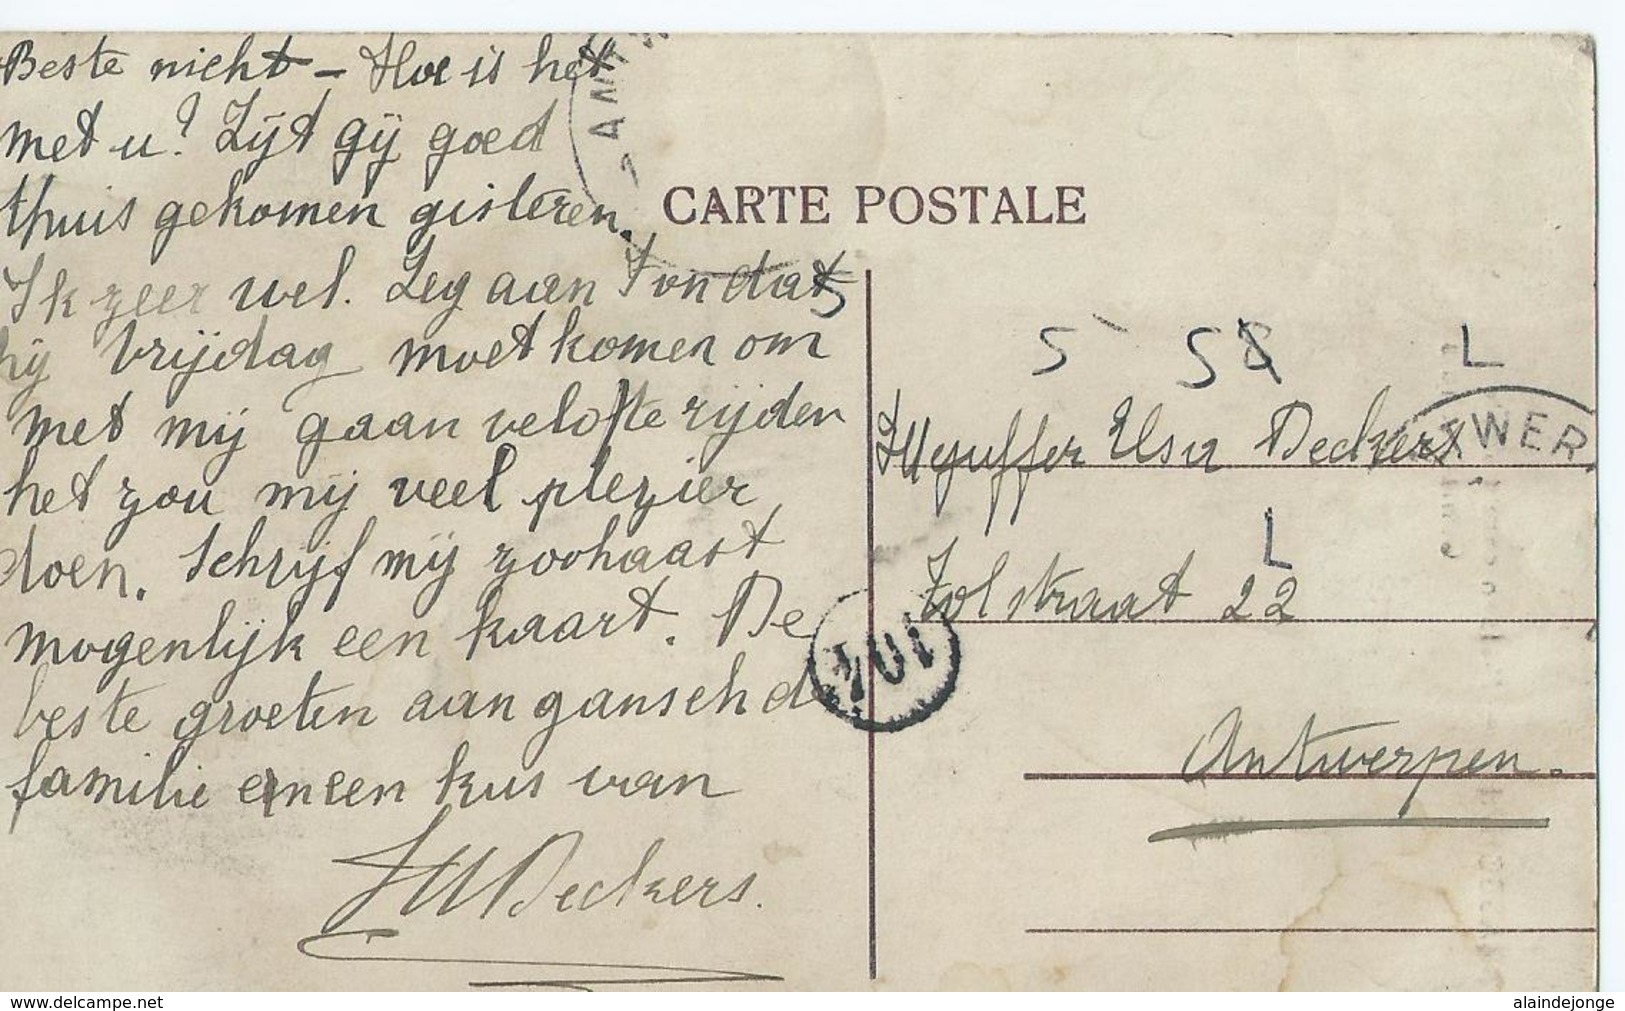 Beste nicht - Hoe is het
met u? Zijt gij goed
thuis gekomen gisteren.
Ik zeer wel. Zeg aan Fon dat
hij Vrijdag moet komen om
met mij gaan velo te rijden
het zou mij veel plezier
doen. Schrijf mij zoohaast
mogenlijk een kaart. De
beste groeten aan gansch de
familie en een kus van
Deckers.
CARTE POSTALE
ANTW
5 58 L
Mejuffer Elsa Deckers
TWER
L
Zolstraat 22
Antwerpen.
www.delcampe.net
alaindejonge